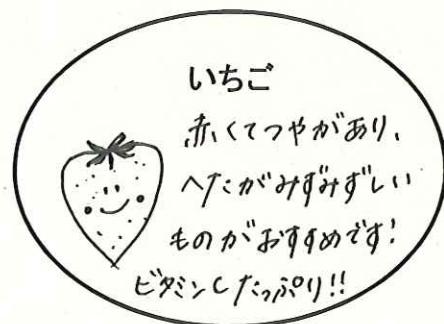 いちご
赤くてつやがあり、
へたがみずみずしい
ものがおすすめです!
ビタミンCたっぷり!!